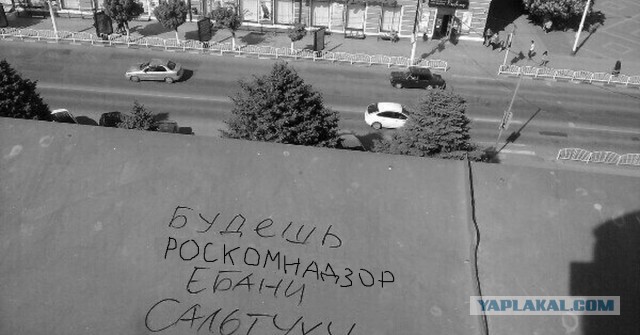 БУДЕШЬ
РОСКОМНАДЗОР
ЕБАНИ
САЛЬТУХУ
YAPLAKAL.COM